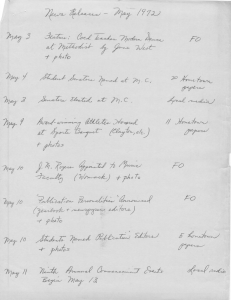 News Releases - May 1972
May 3 Feature: Cord Trades Motion Game FO
at Methodist by Gene West
+ photo
May 4 Student Senators Named at M.C. Hometown
papers
May 8 Senators Elected at M.C. local media
May 9 Award-winning Athletes Honored 11 Hometown
at Sports Banquet papers
+ photos
May 10 J. R. Appointed to Music FO
Faculty (Womack) + photo
May 10 Publication Announced FO
(yearbook + newspaper editors)
+ photo
May 10 Students Named Publication Editors 5 hometown
+ photos papers
May 11 Ninth Annual Commencement Events local media
Begin May 13